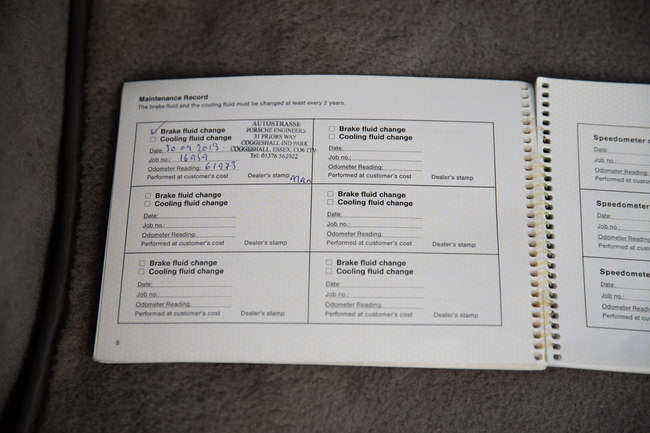 Maintenance Record
The brake fluid and the cooling fluid must be changed at least every 2 years.
Brake fluid change
Cooling fluid change
Date: 30.09.2013
Job no.: 16939
Odometer Reading: 61973
Performed at customer's cost
Dealer's stamp
AUTOSTRASSE
PORSCHE ENGINEERS
31 PRIORS WAY
COGGESHALL IND PARK
COGGESHALL, ESSEX, CO6 1TW
Tel: 01376 562922
Brake fluid change
Cooling fluid change
Date:
Job no.:
Odometer Reading:
Performed at customer's cost
Dealer's stamp
Brake fluid change
Cooling fluid change
Date:
Job no.:
Odometer Reading:
Performed at customer's cost
Dealer's stamp
Brake fluid change
Cooling fluid change
Date:
Job no.:
Odometer Reading:
Performed at customer's cost
Dealer's stamp
Brake fluid change
Cooling fluid change
Date:
Job no.:
Odometer Reading:
Performed at customer's cost
Dealer's stamp
Brake fluid change
Cooling fluid change
Date:
Job no.:
Odometer Reading:
Performed at customer's cost
Dealer's stamp
8
Speedometer
Date:
Job no.:
Odometer Reading:
Performed at cu
Speedometer
Date:
Job no.:
Odometer Reading:
Performed at cu
Speedometer
Date:
Job no.:
Odometer Reading:
Performed at cu